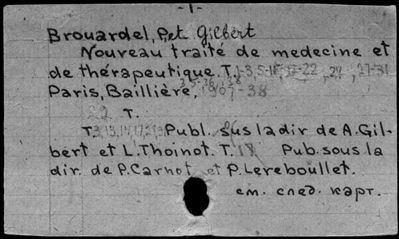 -1-
Brouardel, Pet Gilbert
Nouveau traité de medecine et
de thérapeutique. T. 1-3, 5-15, 17-22, 24, 27-31
Paris, Baillière, 1907-38
22 T.
T. Publ. sus la dir de A. Gil-
bert et L. Thoinot. T. Pub. sous la
dir. de P. Carnot et P. Lereboullet.
см. след. карт.